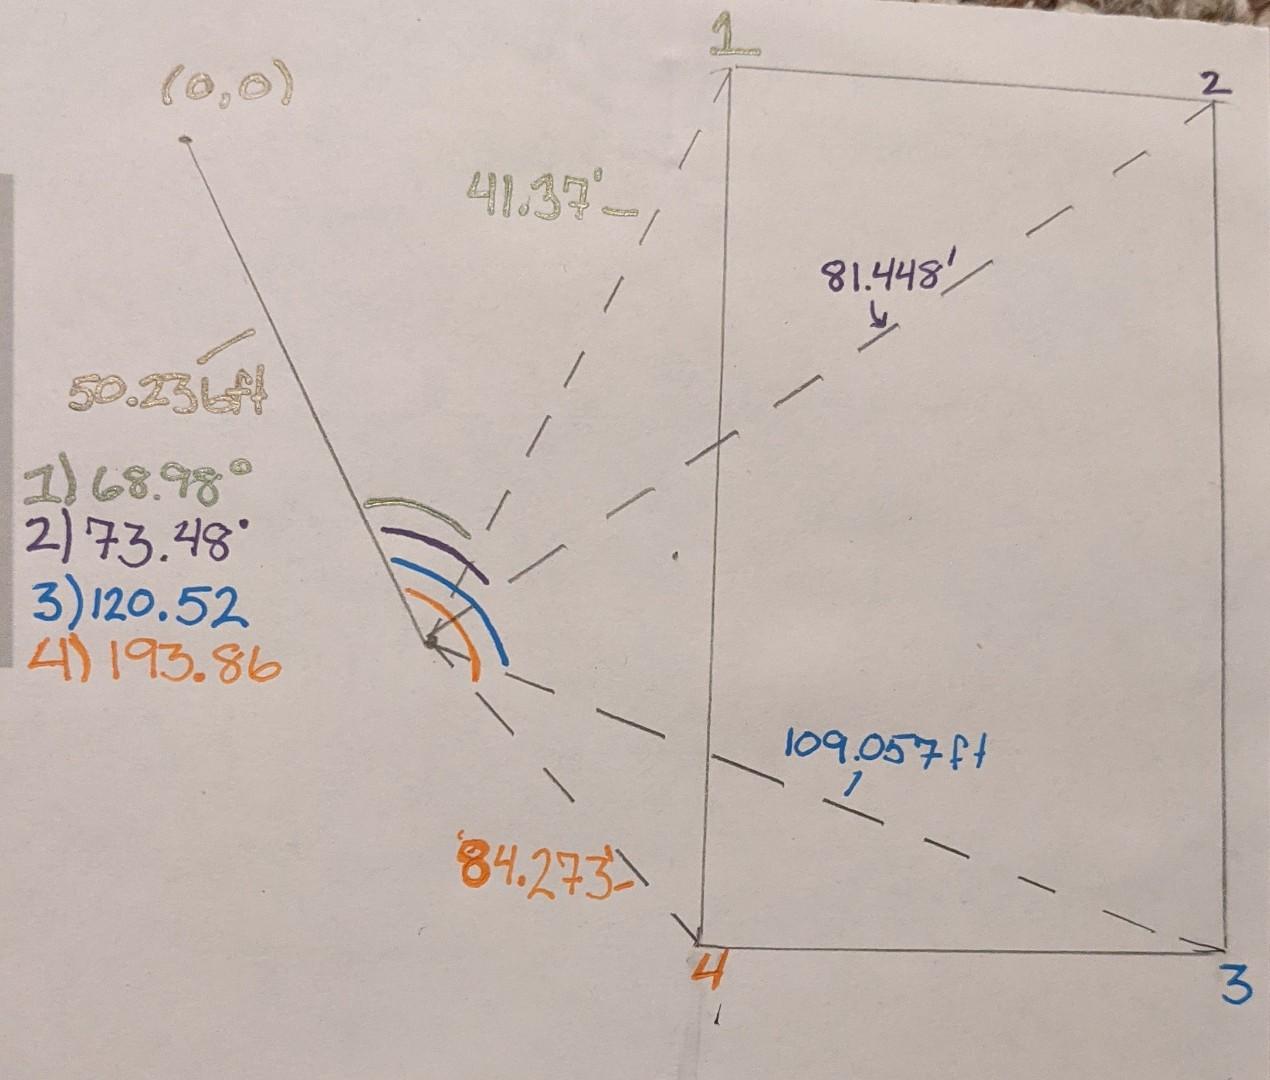 1
(0,0)
2
41.37'
81.448'
50.236ft
1) 68.98°
2) 73.48°
3) 120.52
4) 193.86
109.057ft
84.273'
4
3